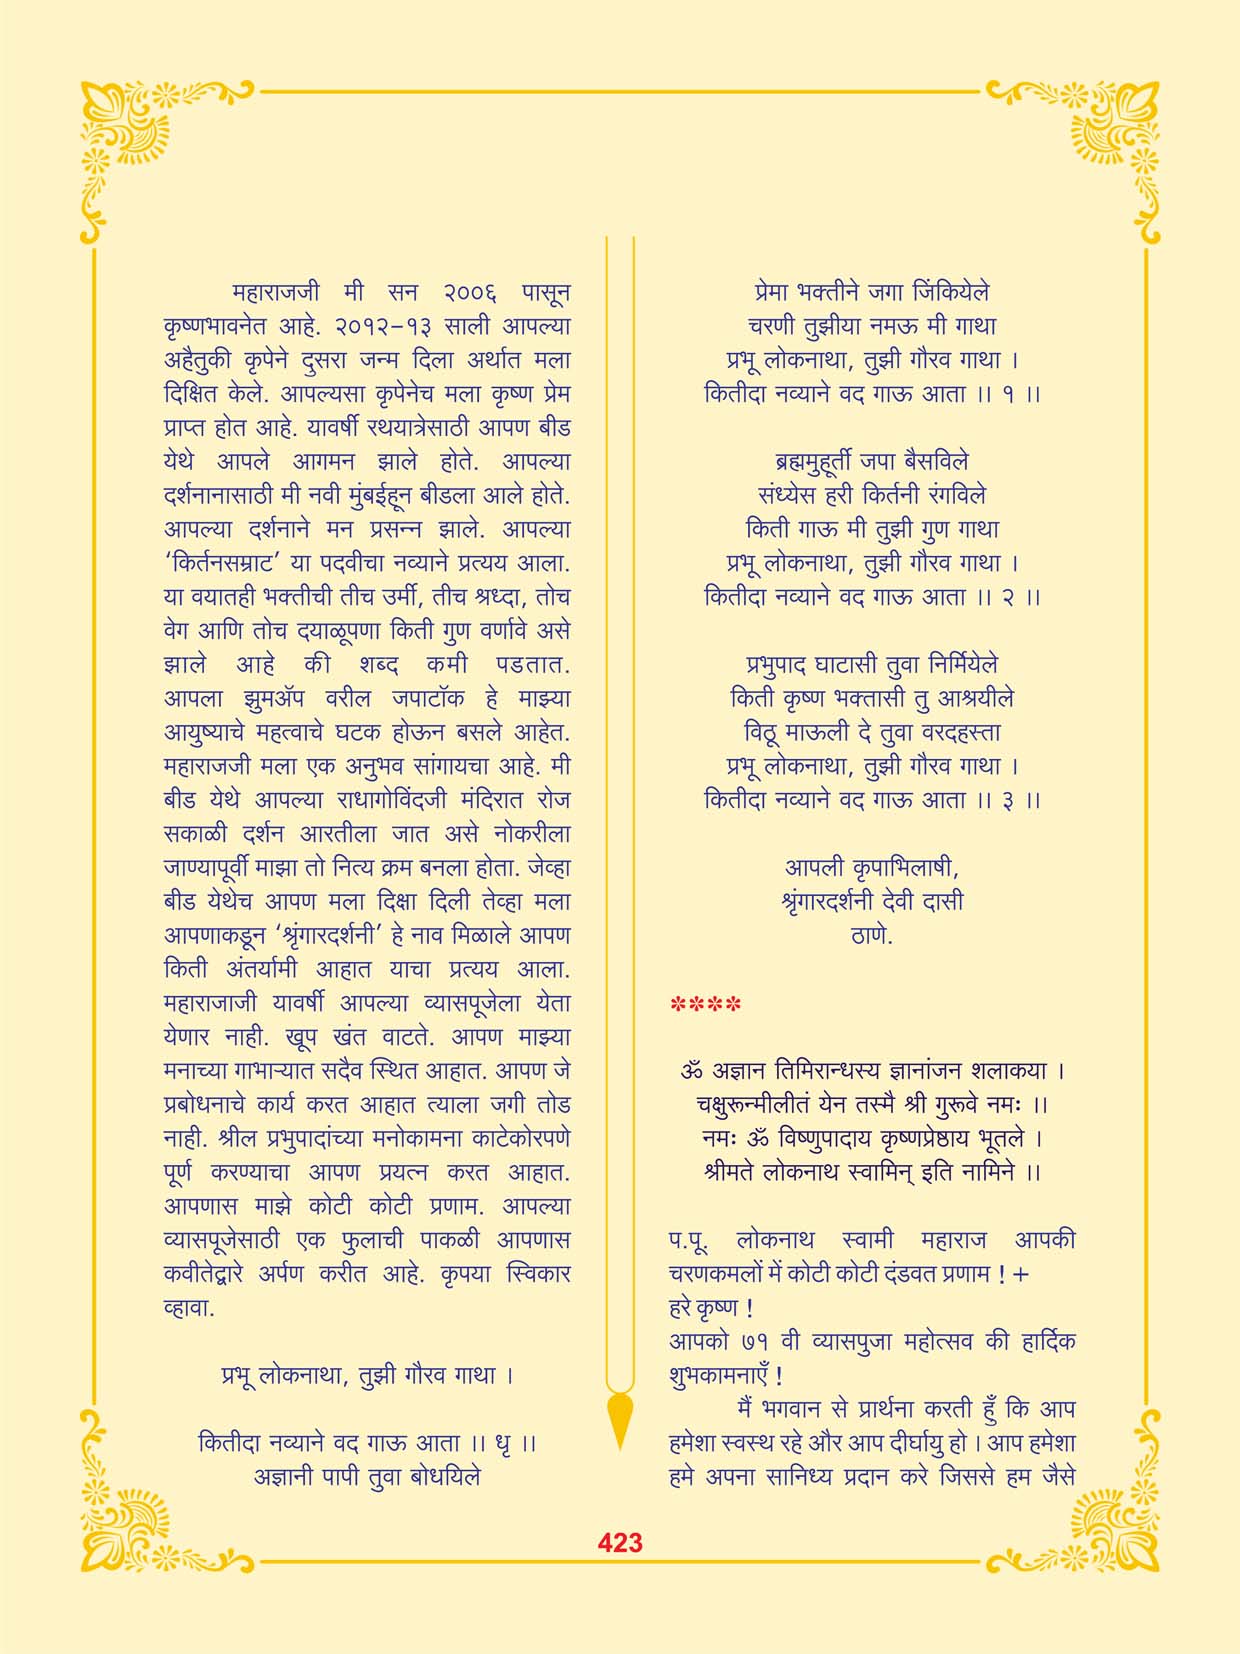 महाराजजी मी सन २००६ पासून
कृष्णभावनेत आहे. २०१२-१३ साली आपल्या
अहैतुकी कृपेने दुसरा जन्म दिला अर्थात मला
दिक्षित केले. आपल्यसा कृपेनेच मला कृष्ण प्रेम
प्राप्त होत आहे. यावर्षी रथयात्रेसाठी आपण बीड
येथे आपले आगमन झाले होते. आपल्या
दर्शनानासाठी मी नवी मुंबईहून बीडला आले होते.
आपल्या दर्शनाने मन प्रसन्न झाले. आपल्या
‘किर्तनसम्राट’ या पदवीचा नव्याने प्रत्यय आला.
या वयातही भक्तीची तीच उर्मी, तीच श्रध्दा, तोच
वेग आणि तोच दयाळूपणा किती गुण वर्णावे असे
झाले आहे की शब्द कमी पडतात.
आपला झुमॲप वरील जपाटॉक हे माझ्या
आयुष्याचे महत्वाचे घटक होऊन बसले आहेत.
महाराजजी मला एक अनुभव सांगायचा आहे. मी
बीड येथे आपल्या राधागोविंदजी मंदिरात रोज
सकाळी दर्शन आरतीला जात असे नोकरीला
जाण्यापूर्वी माझा तो नित्य क्रम बनला होता. जेव्हा
बीड येथेच आपण मला दिक्षा दिली तेव्हा मला
आपणाकडून ‘श्रृंगारदर्शनी’ हे नाव मिळाले आपण
किती अंतर्यामी आहात याचा प्रत्यय आला.
महाराजाजी यावर्षी आपल्या व्यासपूजेला येता
येणार नाही. खूप खंत वाटते. आपण माझ्या
मनाच्या गाभाऱ्यात सदैव स्थित आहात. आपण जे
प्रबोधनाचे कार्य करत आहात त्याला जगी तोड
नाही. श्रील प्रभुपादांच्या मनोकामना काटेकोरपणे
पूर्ण करण्याचा आपण प्रयत्न करत आहात.
आपणास माझे कोटी कोटी प्रणाम. आपल्या
व्यासपूजेसाठी एक फुलाची पाकळी आपणास
कवीतेद्वारे अर्पण करीत आहे. कृपया स्विकार
व्हावा.
प्रभू लोकनाथा, तुझी गौरव गाथा ।
कितीदा नव्याने वद गाऊ आता ।। धृ ।।
अज्ञानी पापी तुवा बोधयिले
प्रेमा भक्तीने जगा जिंकियेले
चरणी तुझीया नमऊ मी गाथा
प्रभू लोकनाथा, तुझी गौरव गाथा ।
कितीदा नव्याने वद गाऊ आता ।। १ ।।
ब्रह्ममुहूर्ती जपा बैसविले
संध्येस हरी किर्तनी रंगविले
किती गाऊ मी तुझी गुण गाथा
प्रभू लोकनाथा, तुझी गौरव गाथा ।
कितीदा नव्याने वद गाऊ आता ।। २ ।।
प्रभुपाद घाटासी तुवा निर्मियेले
किती कृष्ण भक्तासी तु आश्रयीले
विठू माऊली दे तुवा वरदहस्ता
प्रभू लोकनाथा, तुझी गौरव गाथा ।
कितीदा नव्याने वद गाऊ आता ।। ३ ।।
आपली कृपाभिलाषी,
श्रृंगारदर्शनी देवी दासी
ठाणे.
****
ॐ अज्ञान तिमिरान्धस्य ज्ञानांजन शलाकया ।
चक्षुरून्मीलीतं येन तस्मै श्री गुरूवे नमः ।।
नमः ॐ विष्णुपादाय कृष्णप्रेष्ठाय भूतले ।
श्रीमते लोकनाथ स्वामिन् इति नामिने ।।
प.पू. लोकनाथ स्वामी महाराज आपकी
चरणकमलों में कोटी कोटी दंडवत प्रणाम ! +
हरे कृष्ण !
आपको ७१ वी व्यासपुजा महोत्सव की हार्दिक
शुभकामनाएँ !
मैं भगवान से प्रार्थना करती हुँ कि आप
हमेशा स्वस्थ रहे और आप दीर्घायु हो । आप हमेशा
हमे अपना सानिध्य प्रदान करे जिससे हम जैसे
423